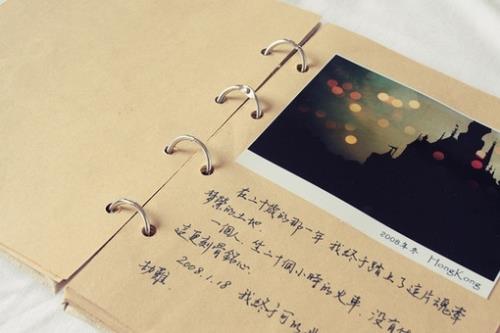 2008.年冬 HongKong
在二十歲的那一年 我终于踏上了這片魂牽
夢縈的土地.
一個人. 坐二十個小時的火車. 沒有
這更刻骨銘心.
2008.1.18 我终于可以
劫難.